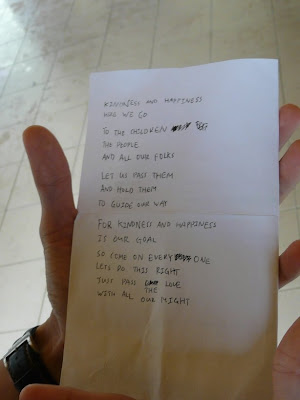 KINDNESS AND HAPPINESS
HERE WE GO
TO THE CHILDREN
THE PEOPLE
AND ALL OUR FOLKS
LET US PASS THEM
AND HOLD THEM
TO GUIDE OUR WAY
FOR KINDNESS AND HAPPINESS
IS OUR GOAL
SO COME ON EVERY ONE
LETS DO THIS RIGHT
PASS THE LOVE
WITH ALL OUR MIGHT